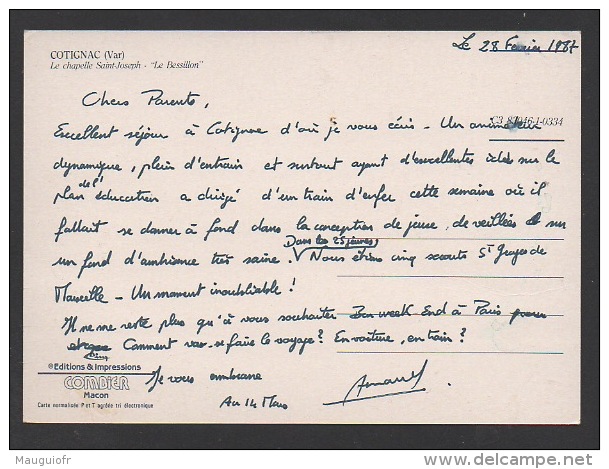 Le 28 Fevrier 1987
COTIGNAC (Var)
Le chapelle Saint-Joseph - "Le Bessillon"
Chers Parents,
C3 83046-1-0334
Excellent séjour à Cotignac d'où je vous écris - Un animateur
dynamique, plein d'entrain et surtout ayant d'excellentes idées sur le
plan de l'éducation a dirigé d'un train d'enfer cette semaine où il
fallait se donner à fond dans la conception de jeux, de veillées sur
(Dans les 25 jeunes)
un fond d'ambiance très saine. V Nous étions cinq scouts St Georges de
Marseille - Un moment inoubliable !
Il ne me reste plus qu'à vous souhaiter Bon week End à Paris
Comment va se faire le voyage ? En voiture, en train ?
® Editions & Impressions
COMBIER
Macon
Carte normalisée P et T agréée tri électronique
Je vous embrasse
Au 14 Mars
Arnaud
Mauguiofr
delcampe.net